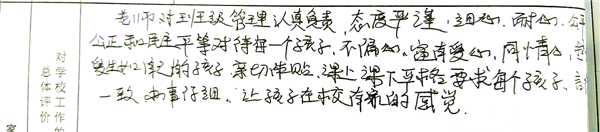 老师对班级管理认真负责,态度严谨,细心,耐心,公平
公正和民主平等对待每一个孩子,不偏心,富有爱心,同情心,
爱生如己的孩子亲切体贴,课上课下严格要求每个孩子,
一致 办事仔细,让孩子在校有家的感觉.
对学校工作的
总体评价
家